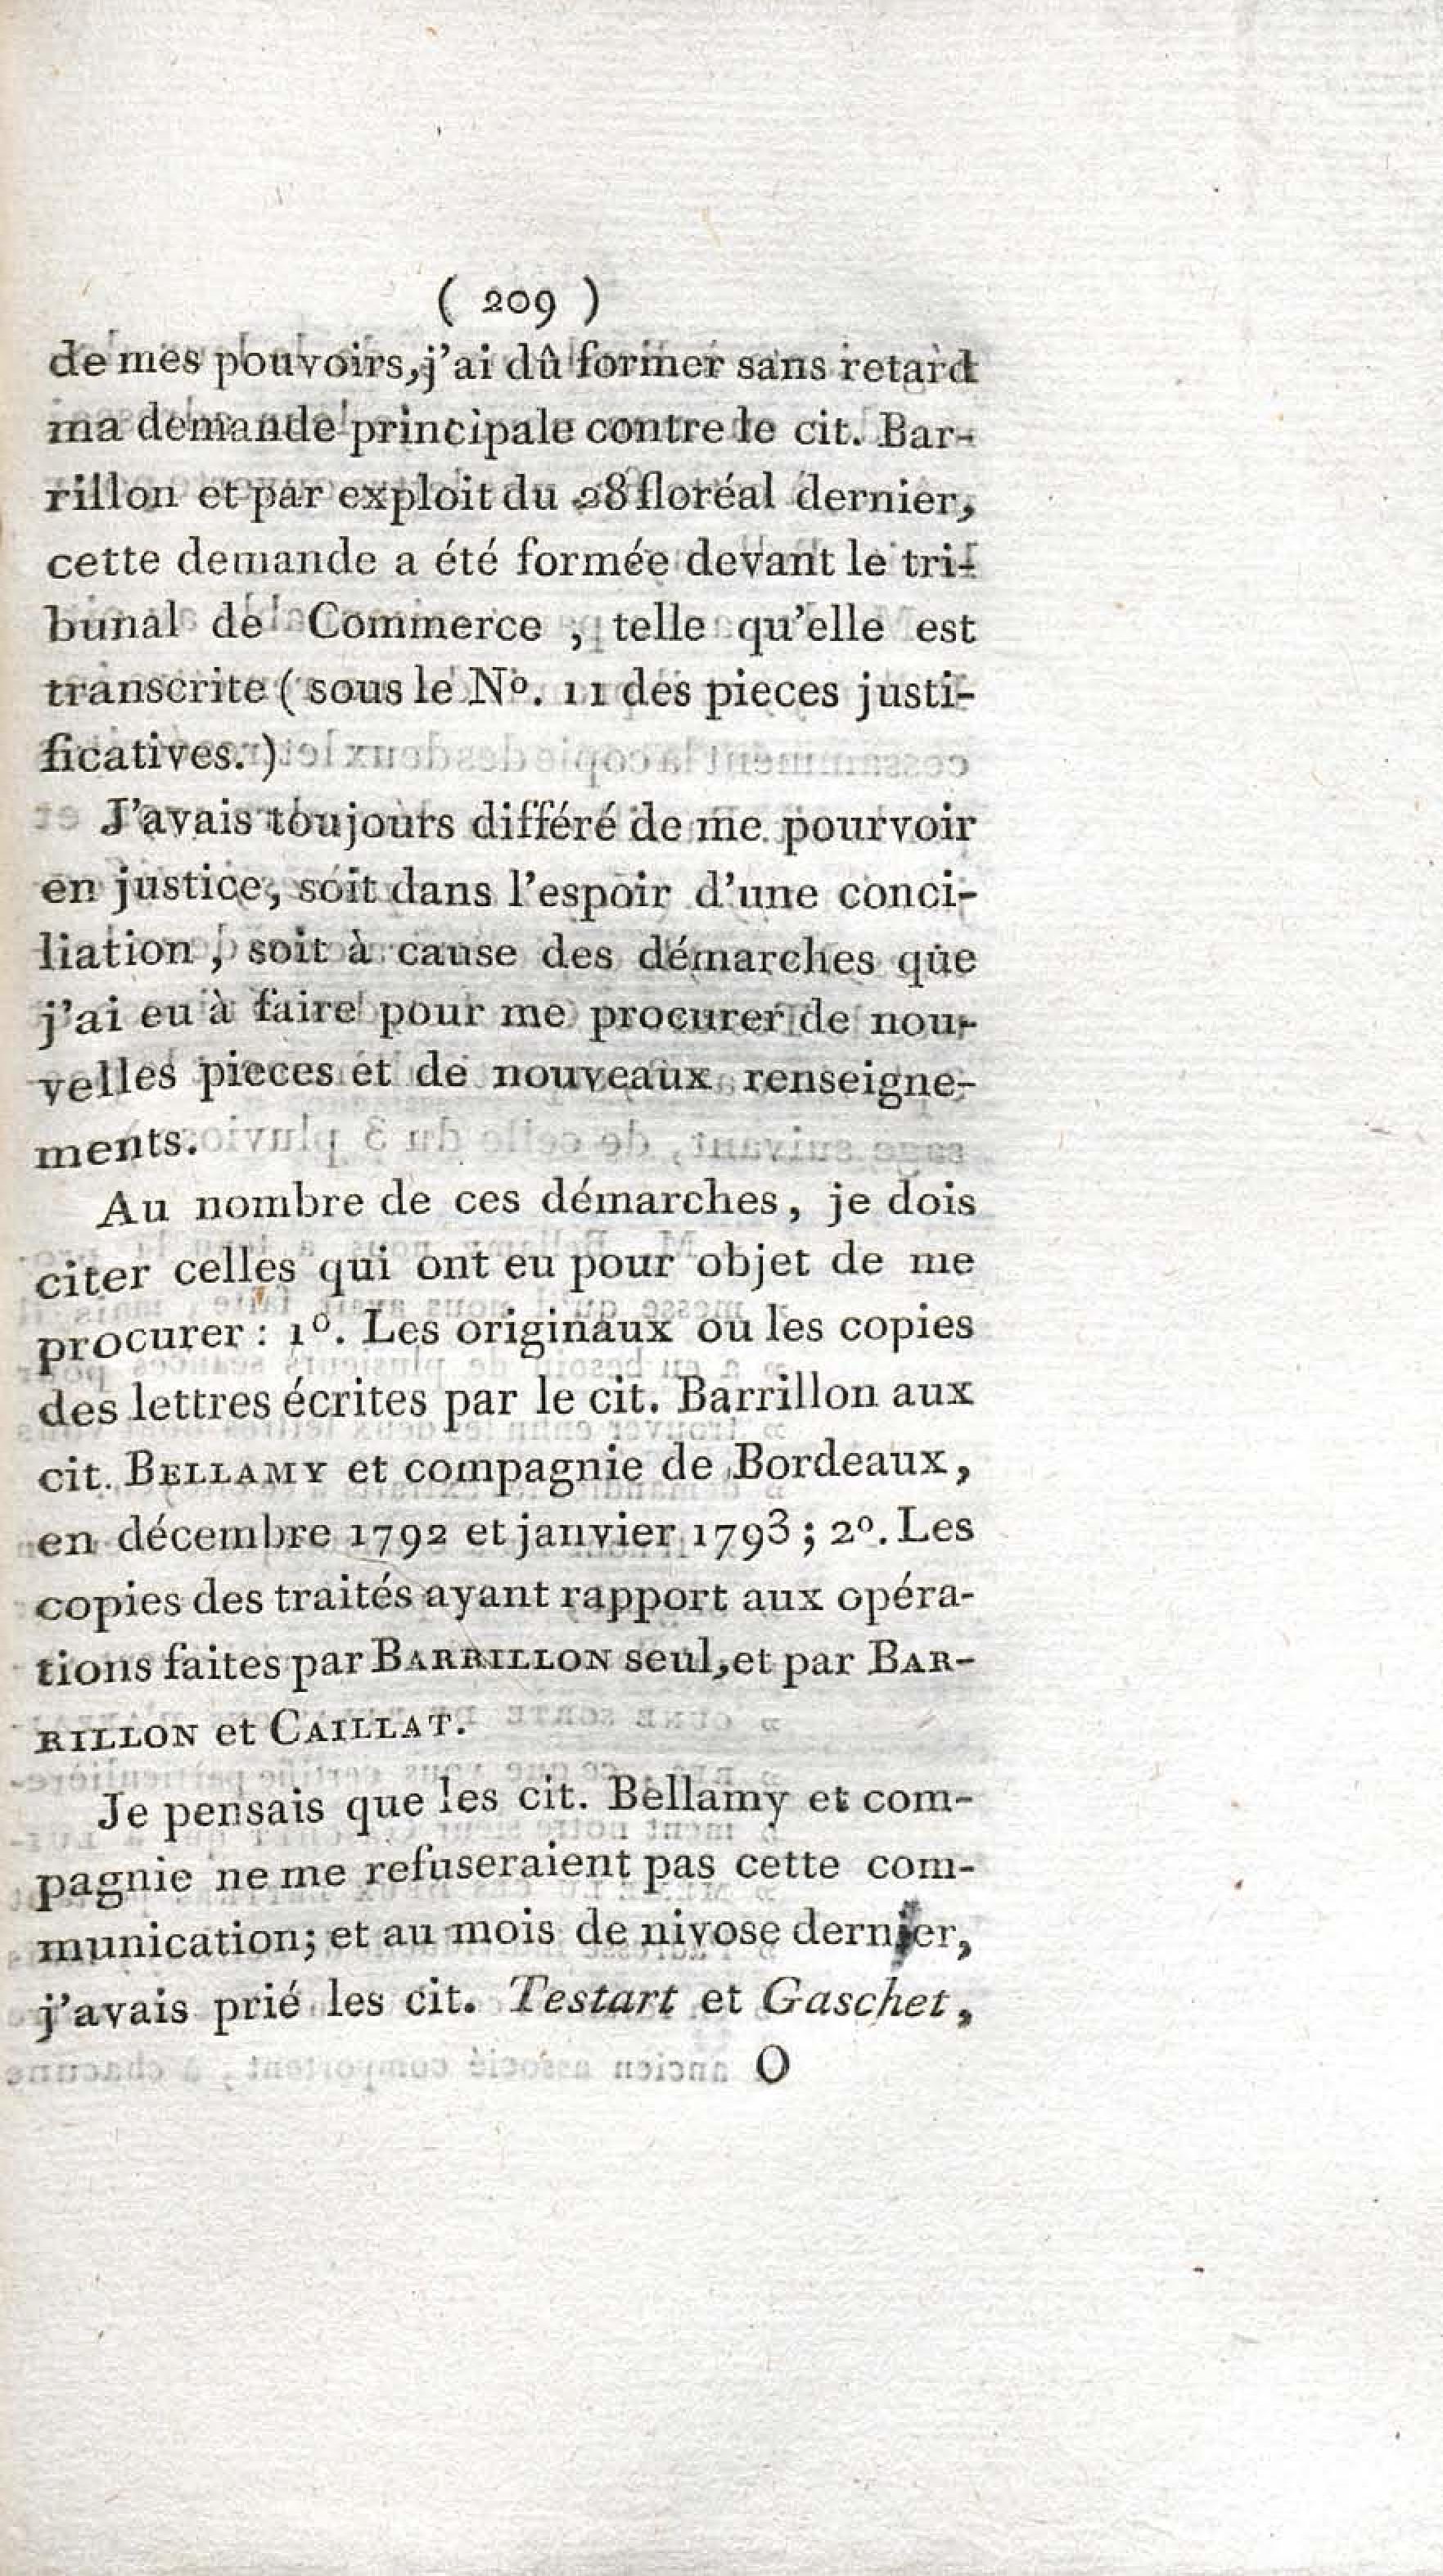 ( 209 )
de mes pouvoirs, j'ai dû former sans retard
ma demande principale contre le cit. Bar-
rillon et par exploit du 28 floréal dernier,
cette demande a été formée devant le tri-
bunal de Commerce , telle qu'elle est
transcrite ( sous le Nº. 11 des pieces justi-
ficatives. )
J'avais toujours différé de me pourvoir
en justice, soit dans l'espoir d'une conci-
liation , soit à cause des démarches que
j'ai eu à faire pour me procurer de nou-
velles pieces et de nouveaux renseigne-
ments.
Au nombre de ces démarches, je dois
citer celles qui ont eu pour objet de me
procurer : 1º. Les originaux ou les copies
des lettres écrites par le cit. Barrillon aux
cit. BELLAMY et compagnie de Bordeaux,
en décembre 1792 et janvier 1793 ; 2º. Les
copies des traités ayant rapport aux opéra-
tions faites par BARRILLON seul, et par BAR-
RILLON et CAILLAT.
Je pensais que les cit. Bellamy et com-
pagnie ne me refuseraient pas cette com-
munication; et au mois de nivose dernier,
j'avais prié les cit. Testart et Gaschet,
O